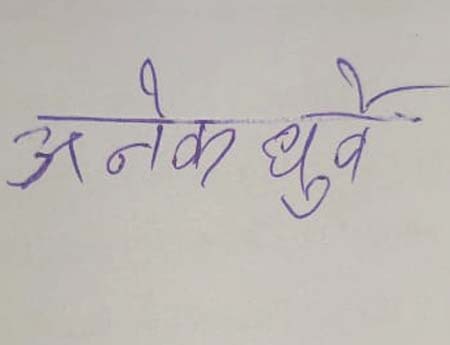 अनेक धुर्वे